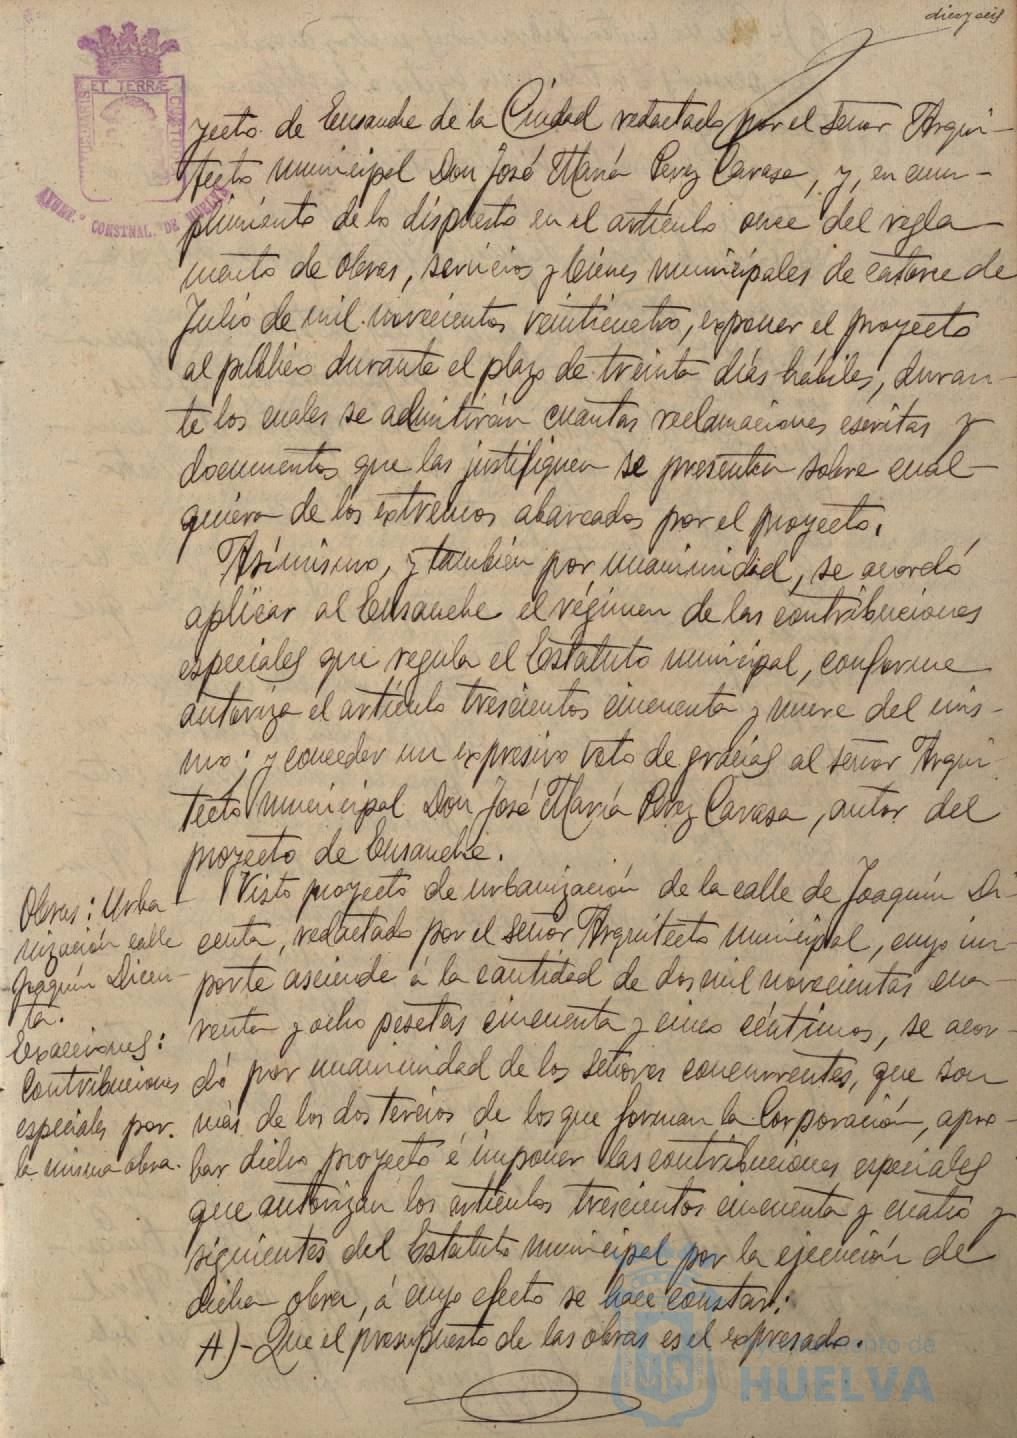 diez y seis
yecto de Ensanche de la Ciudad redactado por el señor Arqui-
tecto municipal Don José María Perez Carasa, y, en cum-
plimiento de lo dispuesto en el artículo once del regla-
mento de obras, servicios y bienes municipales de catorce de
Julio de mil novecientos veinticuatro, exponer el proyecto
al público durante el plazo de treinta días hábiles, duran-
te los cuales se admitirán cuantas reclamaciones escritas y
documentos que las justifiquen se presenten sobre cual-
quiera de los extremos abarcados por el proyecto.
Asímismo, y también por unanimidad, se acordó
aplicar al Ensanche el régimen de las contribuciones
especiales que regula el Estatuto municipal, conforme
autoriza el artículo trescientos cincuenta y nueve del mis-
mo; y conceder un expresivo voto de gracias al señor Arqui-
tecto municipal Don José María Perez Carasa, autor del
proyecto de Ensanche.
Obras: Urba-
nización calle
Joaquín Dicen-
ta.
Exacciones:
Contribuciones
especiales por
la misma obra.
Visto proyecto de urbanización de la calle de Joaquín Di-
centa, redactado por el señor Arquitecto municipal, cuyo im-
porte asciende á la cantidad de dos mil novecientas cua-
renta y ocho pesetas cincuenta y cinco céntimos, se acor-
dó por unanimidad de los señores concurrentes, que son
más de los dos tercios de los que forman la Corporación, apro-
bar dicho proyecto é imponer las contribuciones especiales
que autorizan los artículos trescientos cincuenta y cuatro y
siguientes del Estatuto municipal por la ejecución de
dicha obra, á cuyo efecto se hace constar:
A)- Que el presupuesto de las obras es el expresado.
ET TERRÆ
AYUNT.º CONSTNAL. DE HUELVA
Ayuntamiento de
HUELVA